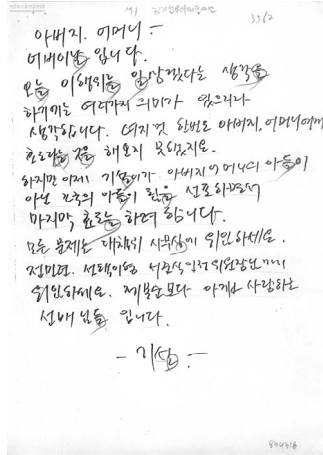 3362
아버지. 어머니.
어버이날 입니다.
오늘 이 행위는 일상겠다는 생각을
하기까지는 여러가지 의미가 있으리라
생각합니다. 여지껏 한번도 아버지, 어머니에게
효도다운 것을 해오지 못했지요.
하지만 이제 기설이가 아버지 어머니의 아들이
아닌 조국의 아들이 됨을 선포하면서
마지막 효도를 하려 합니다.
모든 문제는 대책위 사무실에 위임하세요.
전민련. 선택이형 서준식 인권위원장님에게
위임하세요. 제 몸보다 아끼고 사랑하는
선배님들 입니다.
- 기설 -